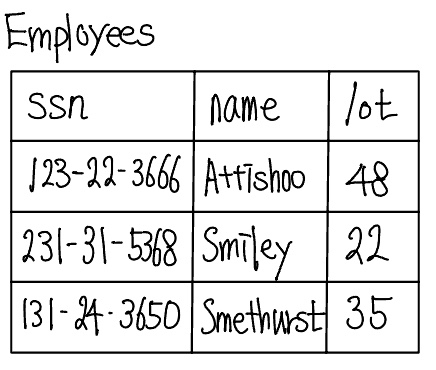 Employees
ssn name lot
123-22-3666 Attishoo 48
231-31-5368 Smiley 22
131-24-3650 Smethurst 35